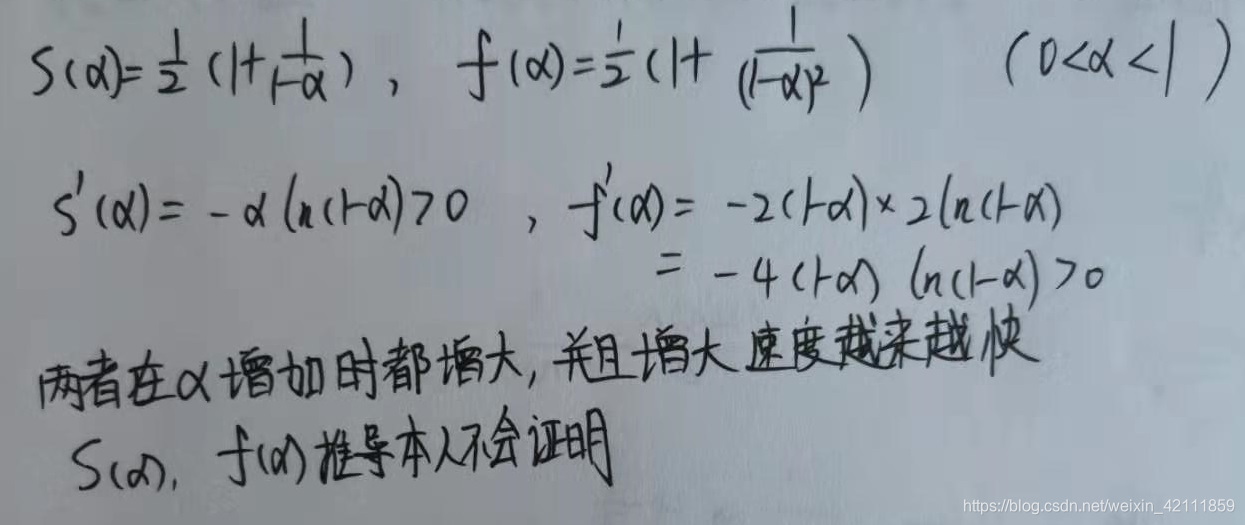 S(α)=1/2(1+1/(1-α)), f(α)=1/2(1+1/(1-α)²) (0<α<1)
S'(α)=-α ln(1-α)>0, f'(α)=-2(1-α)×2ln(1-α)
=-4(1-α) ln(1-α)>0
两者在α增加时都增大,并且增大速度越来越快
S(α), f(α)推导本人不会证明
https://blog.csdn.net/weixin_42111859